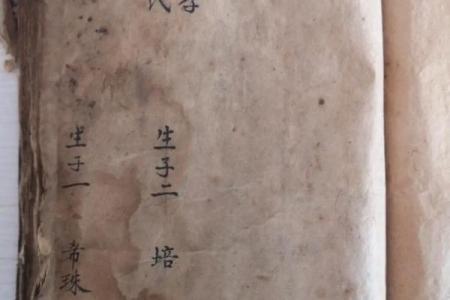 生子二 培
生子一 希珠